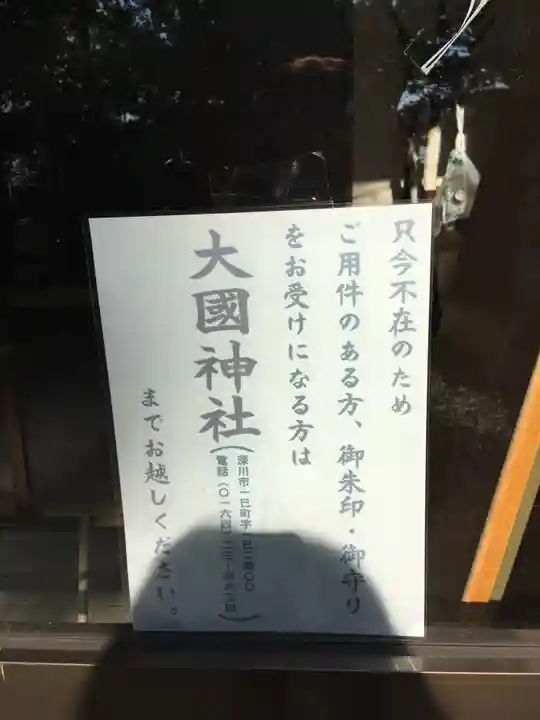 只今不在のため
ご用件のある方、御朱印・御守り
をお受けになる方は
大國神社
(深川市一已町字一已二
電話(〇一六四)二
までお越しください。